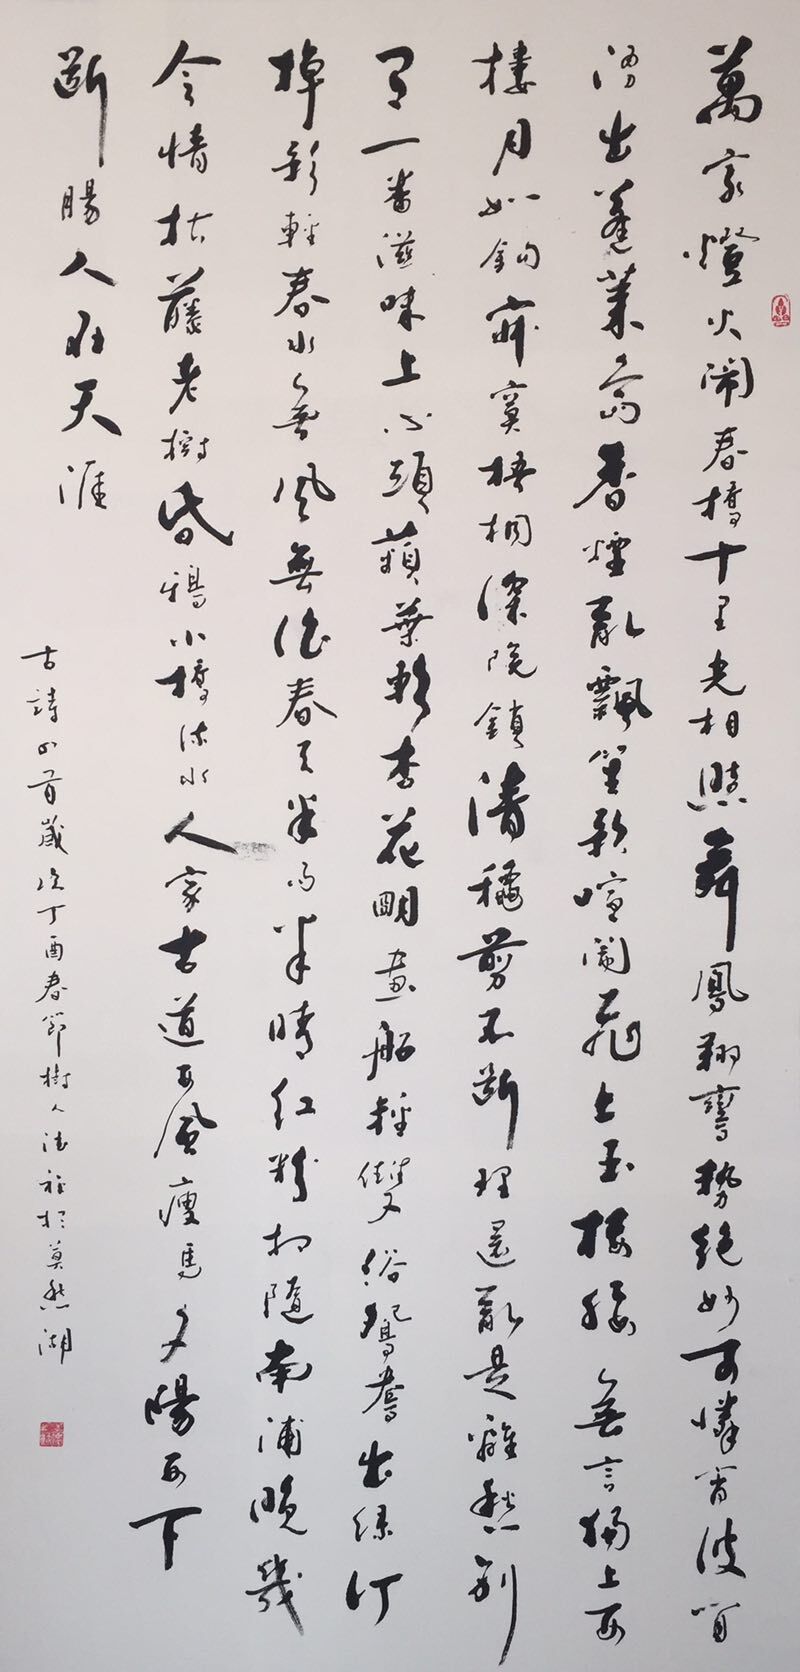 萬家燈火鬧春橋十里光相照舞鳳翔鸞勢絕妙可憐宵波間
湧出蓬萊島香煙亂飄笙歌喧鬧飛上玉樓腰無言獨上西
樓月如鉤寂寞梧桐深院鎖清穐剪不斷理還亂是離愁別
有一番滋味上心頭蘋葉軟杏花明畫船輕雙浴鴛鴦出綠汀
棹歌輕春水無風無浪春天半雨半晴紅粉相隨南浦晚幾
含情枯藤老樹昏鴉小橋流水人家古道西風瘦馬夕陽西下
斷腸人在天涯
古詩四首歲次丁酉春節樹人法程於莫愁湖